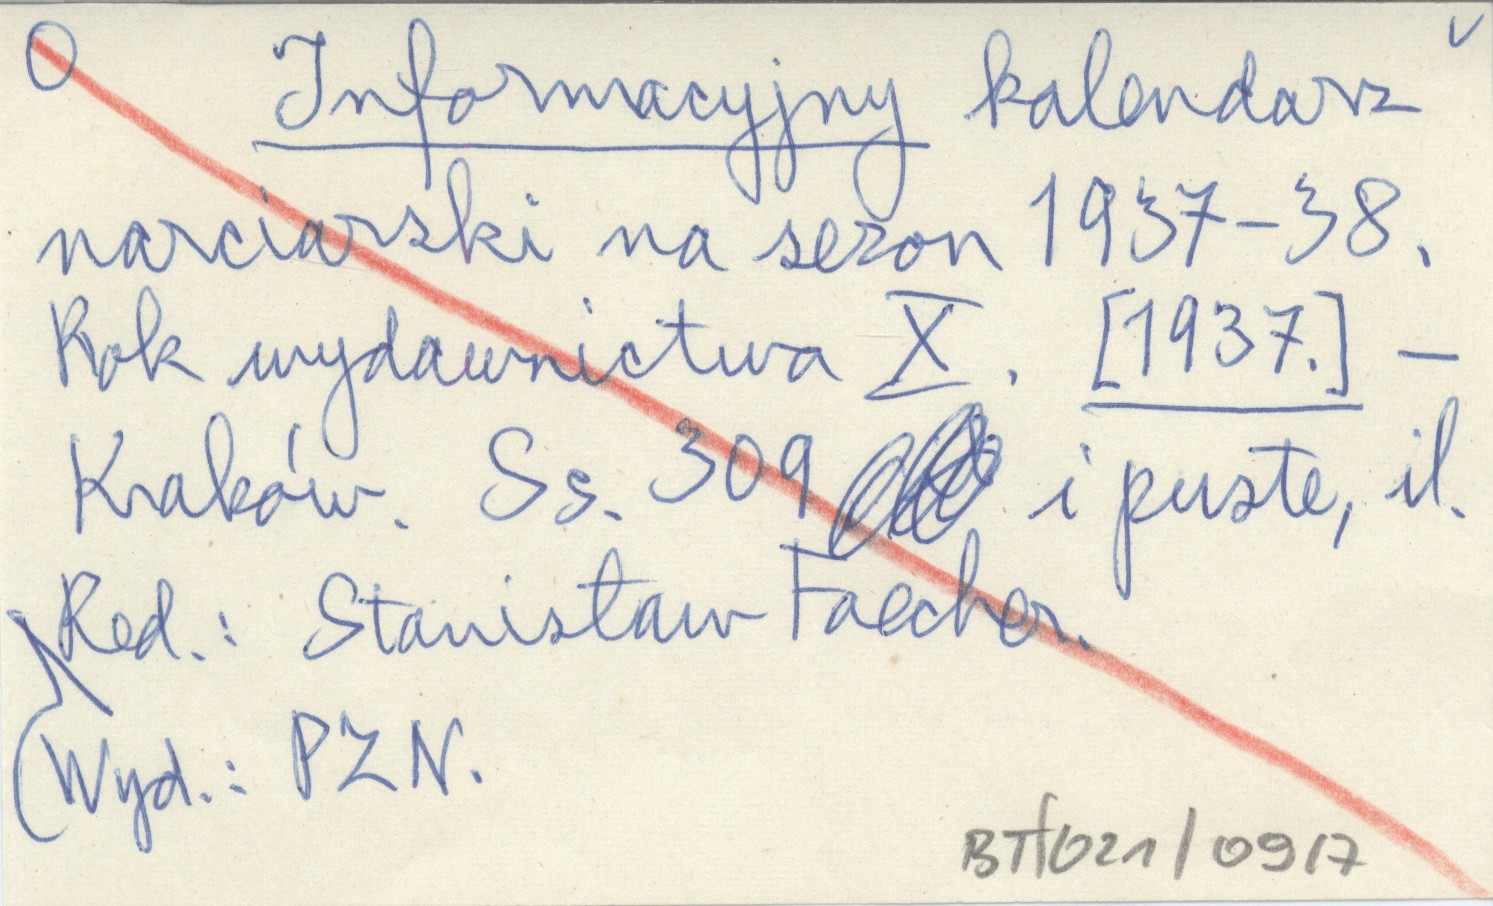 O Informacyjny kalendarz v
narciarski na sezon 1937-38.
Rok wydawnictwa X. [1937.] —
Kraków. Ss. 309 i puste, il.
Red.: Stanisław Faecher.
Wyd.: PZN.
BT/021/0917